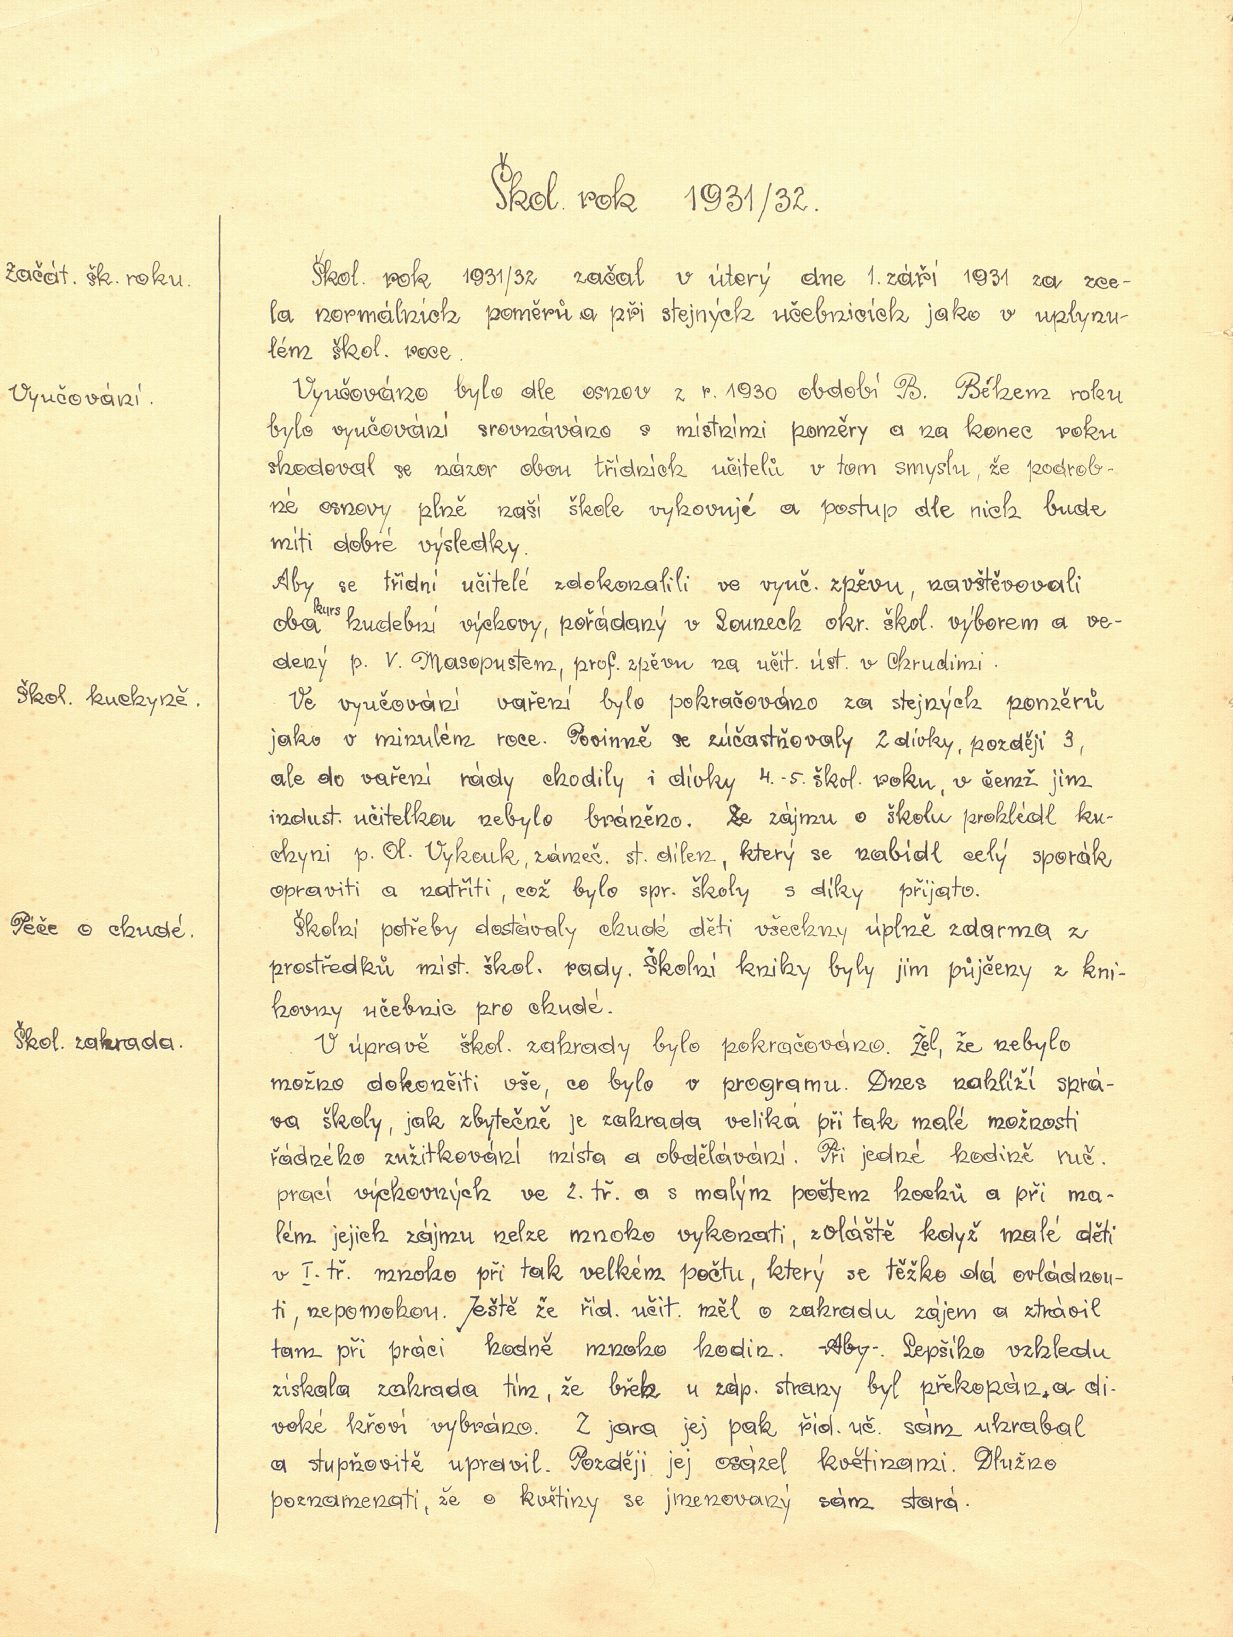 Škol. rok 1931/32.
Začát. šk. roku.
Škol. rok 1931/32 začal v úterý dne 1. září 1931 za zce-
la normálních poměrů a při stejných učebnicích jako v uplynu-
lém škol. roce.
Vyučování.
Vyučováno bylo dle osnov z r. 1930 období B. Během roku
bylo vyučování srovnáváno s místními poměry a na konec roku
shodoval se názor obou třídních učitelů v tom smyslu, že podrob-
né osnovy plně naší škole vyhovují a postup dle nich bude
míti dobré výsledky.
Aby se třídní učitelé zdokonalili ve vyuč. zpěvu, navštěvovali
oba kurs hudební výchovy, pořádaný v Lounech okr. škol. výborem a ve-
dený p. V. Masopustem, prof. zpěvu na učit. úst. v Chrudimi.
Škol. kuchyně.
Ve vyučování vaření bylo pokračováno za stejných poměrů
jako v minulém roce. Povinně se zúčastňovaly 2 dívky, později 3,
ale do vaření rády chodily i dívky 4.-5. škol. roku, v čemž jim
indust. učitelkou nebylo bráněno. Ze zájmu o školu prohlédl ku-
chyni p. Ol. Vykouk, zámeč. st. dílen, který se nabídl celý sporák
opraviti a natříti, což bylo spr. školy s díky přijato.
Péče o chudé.
Školní potřeby dostávaly chudé děti všechny úplně zdarma z
prostředků míst. škol. rady. Školní knihy byly jim půjčeny z kni-
hovny učebnic pro chudé.
Škol. zahrada.
V úpravě škol. zahrady bylo pokračováno. Žel, že nebylo
možno dokončiti vše, co bylo v programu. Dnes nahlíží sprá-
va školy, jak zbytečně je zahrada veliká při tak malé možnosti
řádného zužitkování místa a obdělávání. Při jedné hodině ruč.
prací výchovných ve 2. tř. a s malým počtem hochů a při ma-
lém jejich zájmu nelze mnoho vykonati, zvláště když malé děti
v I. tř. mnoho při tak velkém počtu, který se těžko dá ovládnou-
ti, nepomohou. Ještě že říd. učit. měl o zahradu zájem a ztrávil
tam při práci hodně mnoho hodin. -Aby-. Lepšího vzhledu
získala zahrada tím, že břeh u záp. strany byl překopán, a di-
voké křoví vybráno. Z jara jej pak říd. uč. sám uhrabal
a stupňovitě upravil. Později jej osázel květinami. Dlužno
poznamenati, že o květiny se jmenovaný sám stará.